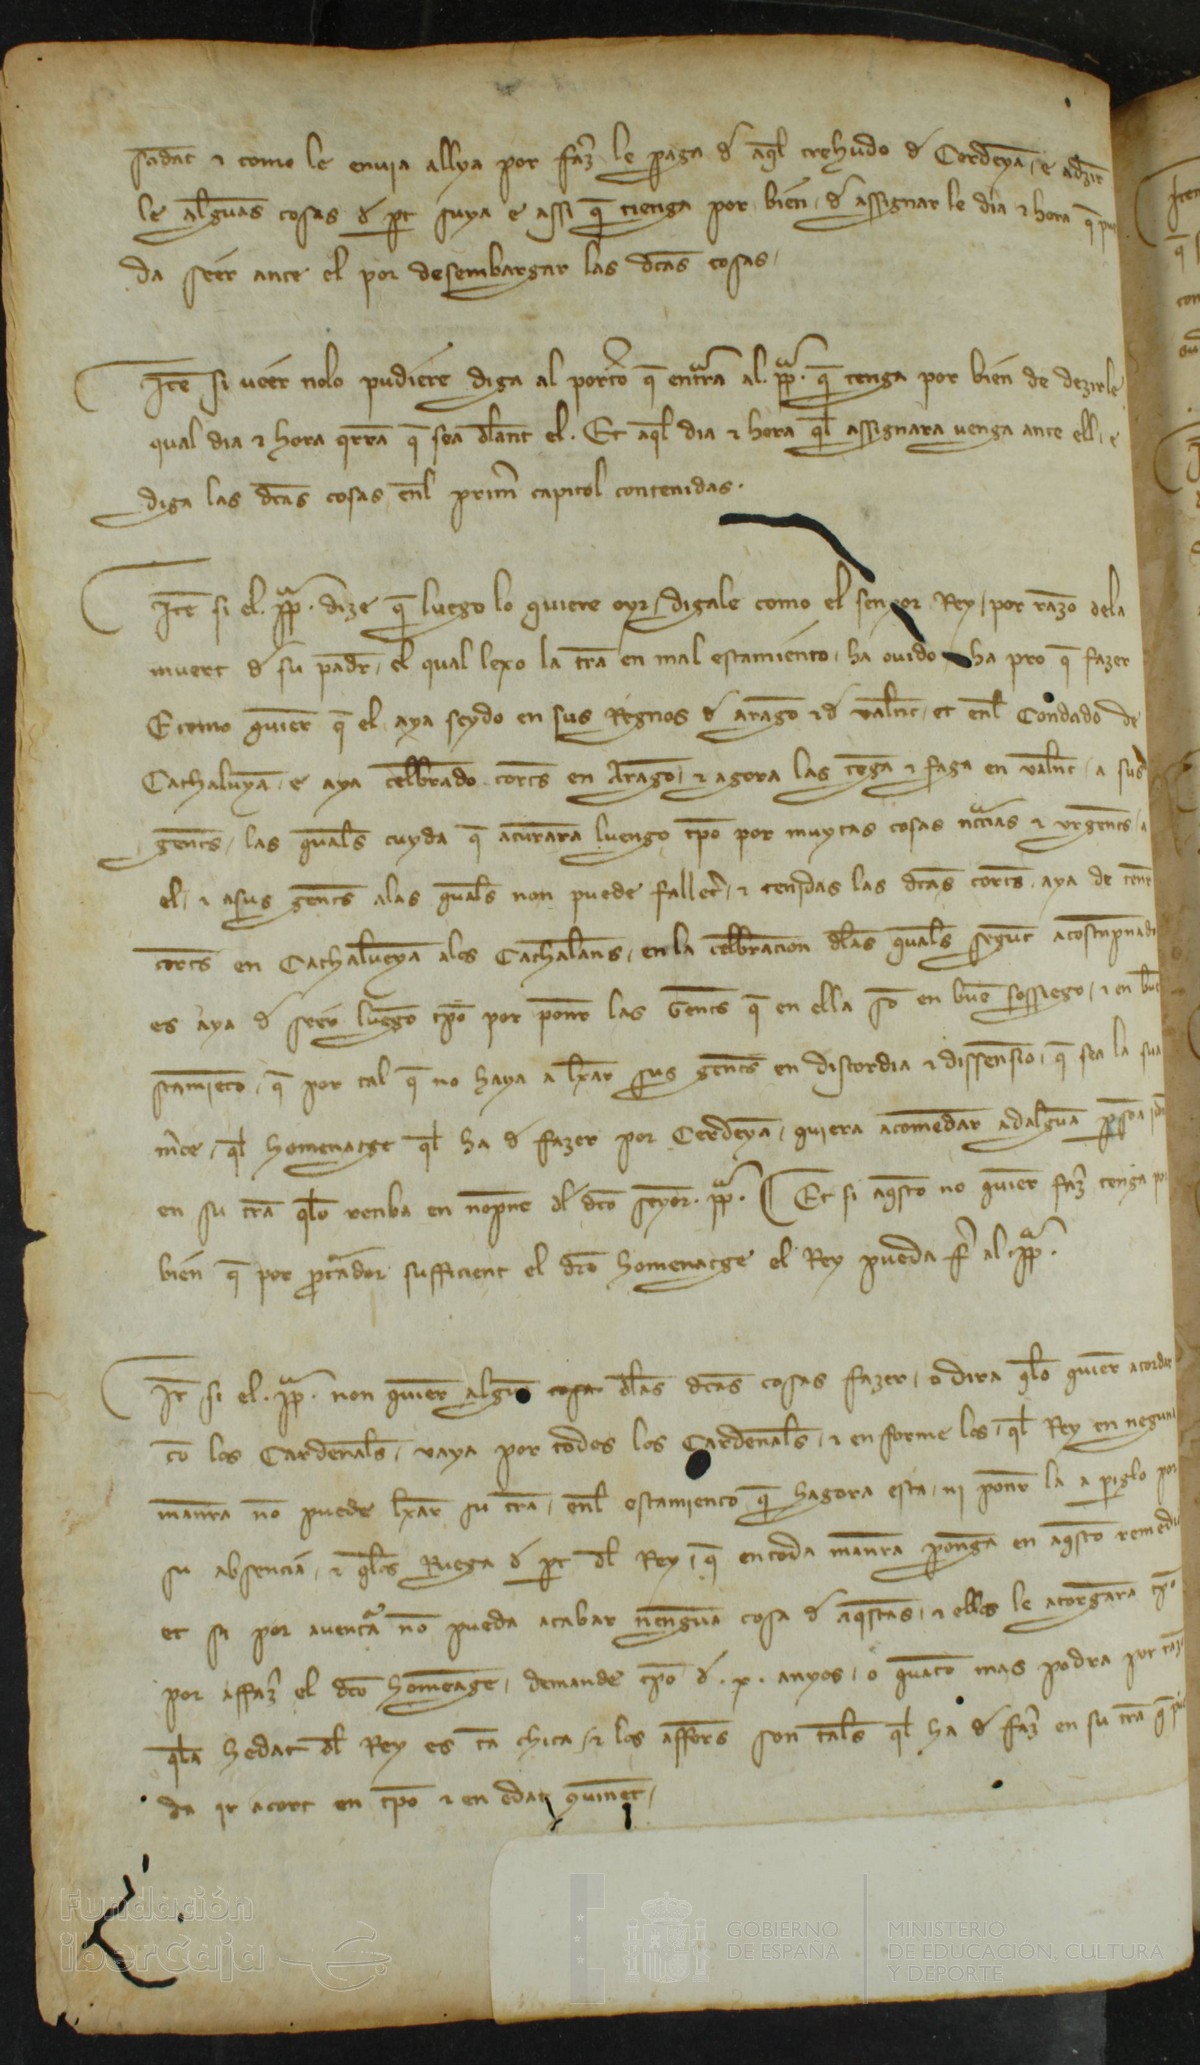 sadat ⁊ como le enuia allya por faz̄ le paga d aq̄l trehudo d Cerdeyā, e adezir
le alḡuas cosas d pt suya e assi q̄ tienga por bien, d assignar le dia ⁊ hora q̄ pue
da seer ante el por desembargar las dc̄as cosas,
Itē si ueer nolo pudiere diga al port̄o q̄ ent̄ra al .pp̄. q̄ tenga por bien de dezirle
qual dia ⁊ hora qrra q̄ sea dlant el. Et aq̄l dia ⁊ hora ql̄ assignara uenga ante ell, e
diga las dc̄as cosas enl̄ prim̄ capitol contenidas.
Itē si el .pp̄. dize q̄ luego lo quiere oyr, digale como el senyor Rey, por razō dela
muert d su padr̄, el qual lexo la tr̄a en mal estamiento, ha ouido ha pro q̄ fazer
E como quier̄ q̄ el aya seydo en sus Regnos d aragō ⁊ d ualn̄c, et enl̄ Condado de
Cathaluyā, e aya celb̄rado corts en Aragō, ⁊ agora las tēga ⁊ faga en ualn̄c, a sus
gent̄s, las qual̄s cuyda q̄ aturara luengo tp̄o por muytas cosas nc̄c̄ias ⁊ urgent̄s, a
el, ⁊ asus gent̄s alas qual̄s non puede fallec̄, ⁊ tenidas las dc̄as cort̄s aya de tenr̄
cort̄s en Cathalueyā alos Cathalan̄s, en la celb̄racion dl̄as qual̄s segūt acostūpnado
es aya d seer luēgo tp̄o por ponr̄ las Gent̄s q̄ en ella sō en buē sossiego, ⁊ en buē
stamiēto, q̄ por tal q̄ no haya a lx̄ar sus gent̄s en discordia ⁊ dissensiō, q̄ sea la sua
mc̄e, ql̄ homenatge ql̄ ha d fazer por Cerdeyā, quiera acomēdar adalguā psōa
en su tr̄a ql̄o reciba en nōpne dl̄ dc̄o senyor .pp̄. ¶ Et si aqs̄to no quier̄ faz̄ tenga por
bien q̄ por pc̄ador sufficient el dc̄o homenatge el Rey pueda f̄ al .pp̄.
It̄ si el .pp̄. non quier̄ alguā cosa dl̄as dc̄as cosas fazer, o dira ql̄o quier̄ acordar
cō los Cardenal̄s, uaya por todos los Cardenal̄s, ⁊ enforme los, ql̄ Rey en neguna
man̄ra nō puede lx̄ar su tr̄a, enl̄ estamiento q̄ hagora esta, ni ponr̄ la a piglo por
su absencia, ⁊ ql̄os Ruega d pt dl̄ Rey, q̄ en toda man̄ra ponga en aqs̄to remedio
et si por auent̄a nō pueda acabar nenguā cosa d aqs̄tas, ⁊ ellos le atorgara tp̄o
por affaz̄ el dc̄o homēage, demande tp̄o d .x. anyos, o quāto mas podra por razō
ql̄a hedat dl̄ Rey es tā chica, ⁊ los affers son tal̄s ql̄ ha d faz̄ en su tr̄a q̄ pue
da ir acort en tp̄o ⁊ en edat quinēt,
Fundación
iberCaja
GOBIERNO
DE ESPAÑA
MINISTERIO
DE EDUCACIÓN, CULTURA
Y DEPORTE